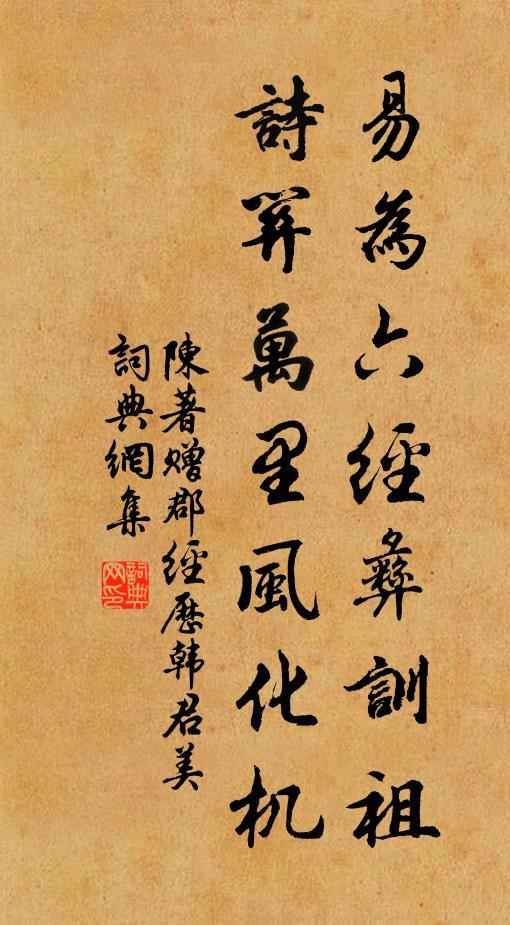 易為六經彝訓祖
詩關萬里風化机
陳著贈郡經歷韩君美
詞典網集
詞典網印